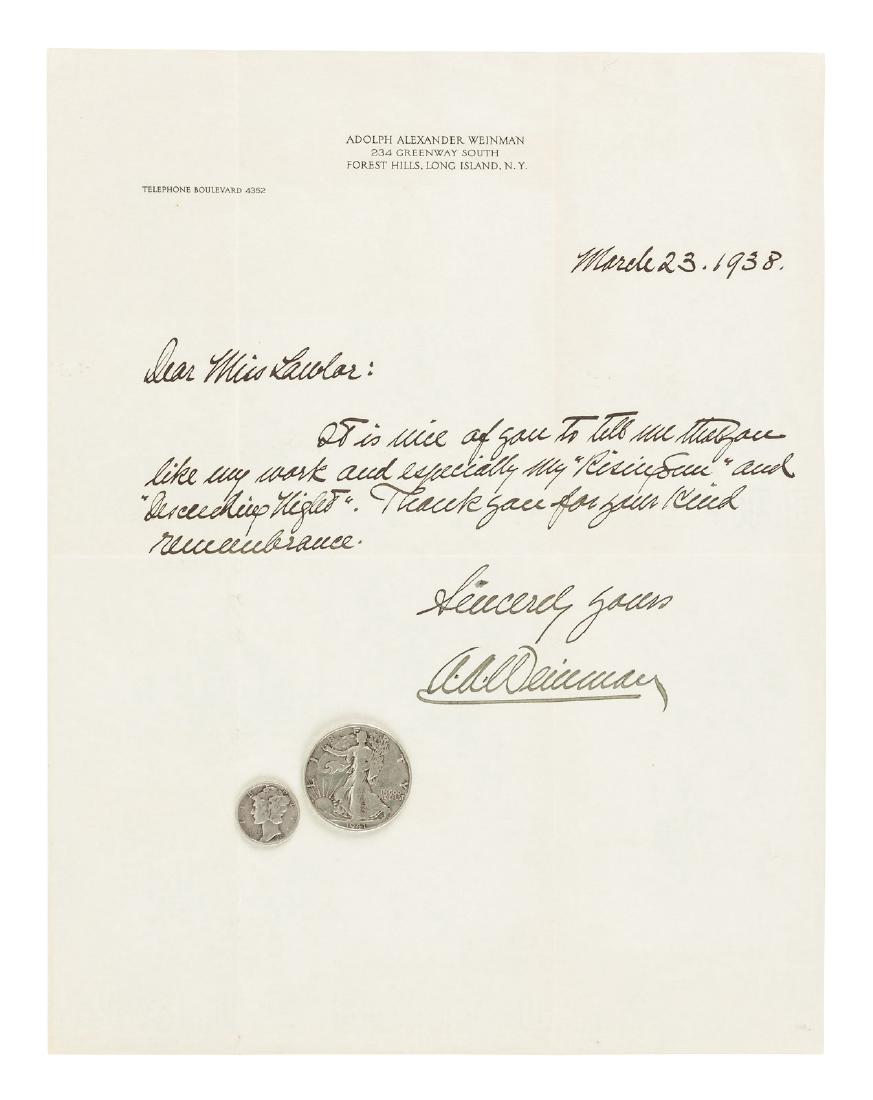 ADOLPH ALEXANDER WEINMAN
234 GREENWAY SOUTH
FOREST HILLS, LONG ISLAND, N.Y.
TELEPHONE BOULEVARD 4352
March 23. 1938.
Dear Miss Lawlor:
It is nice of you to tell me that you
like my work and especially my "Rising Sun" and
"Descending Night". Thank you for your kind
remembrance.
Sincerely yours
A.A. Weinman
LIBERTY
1941